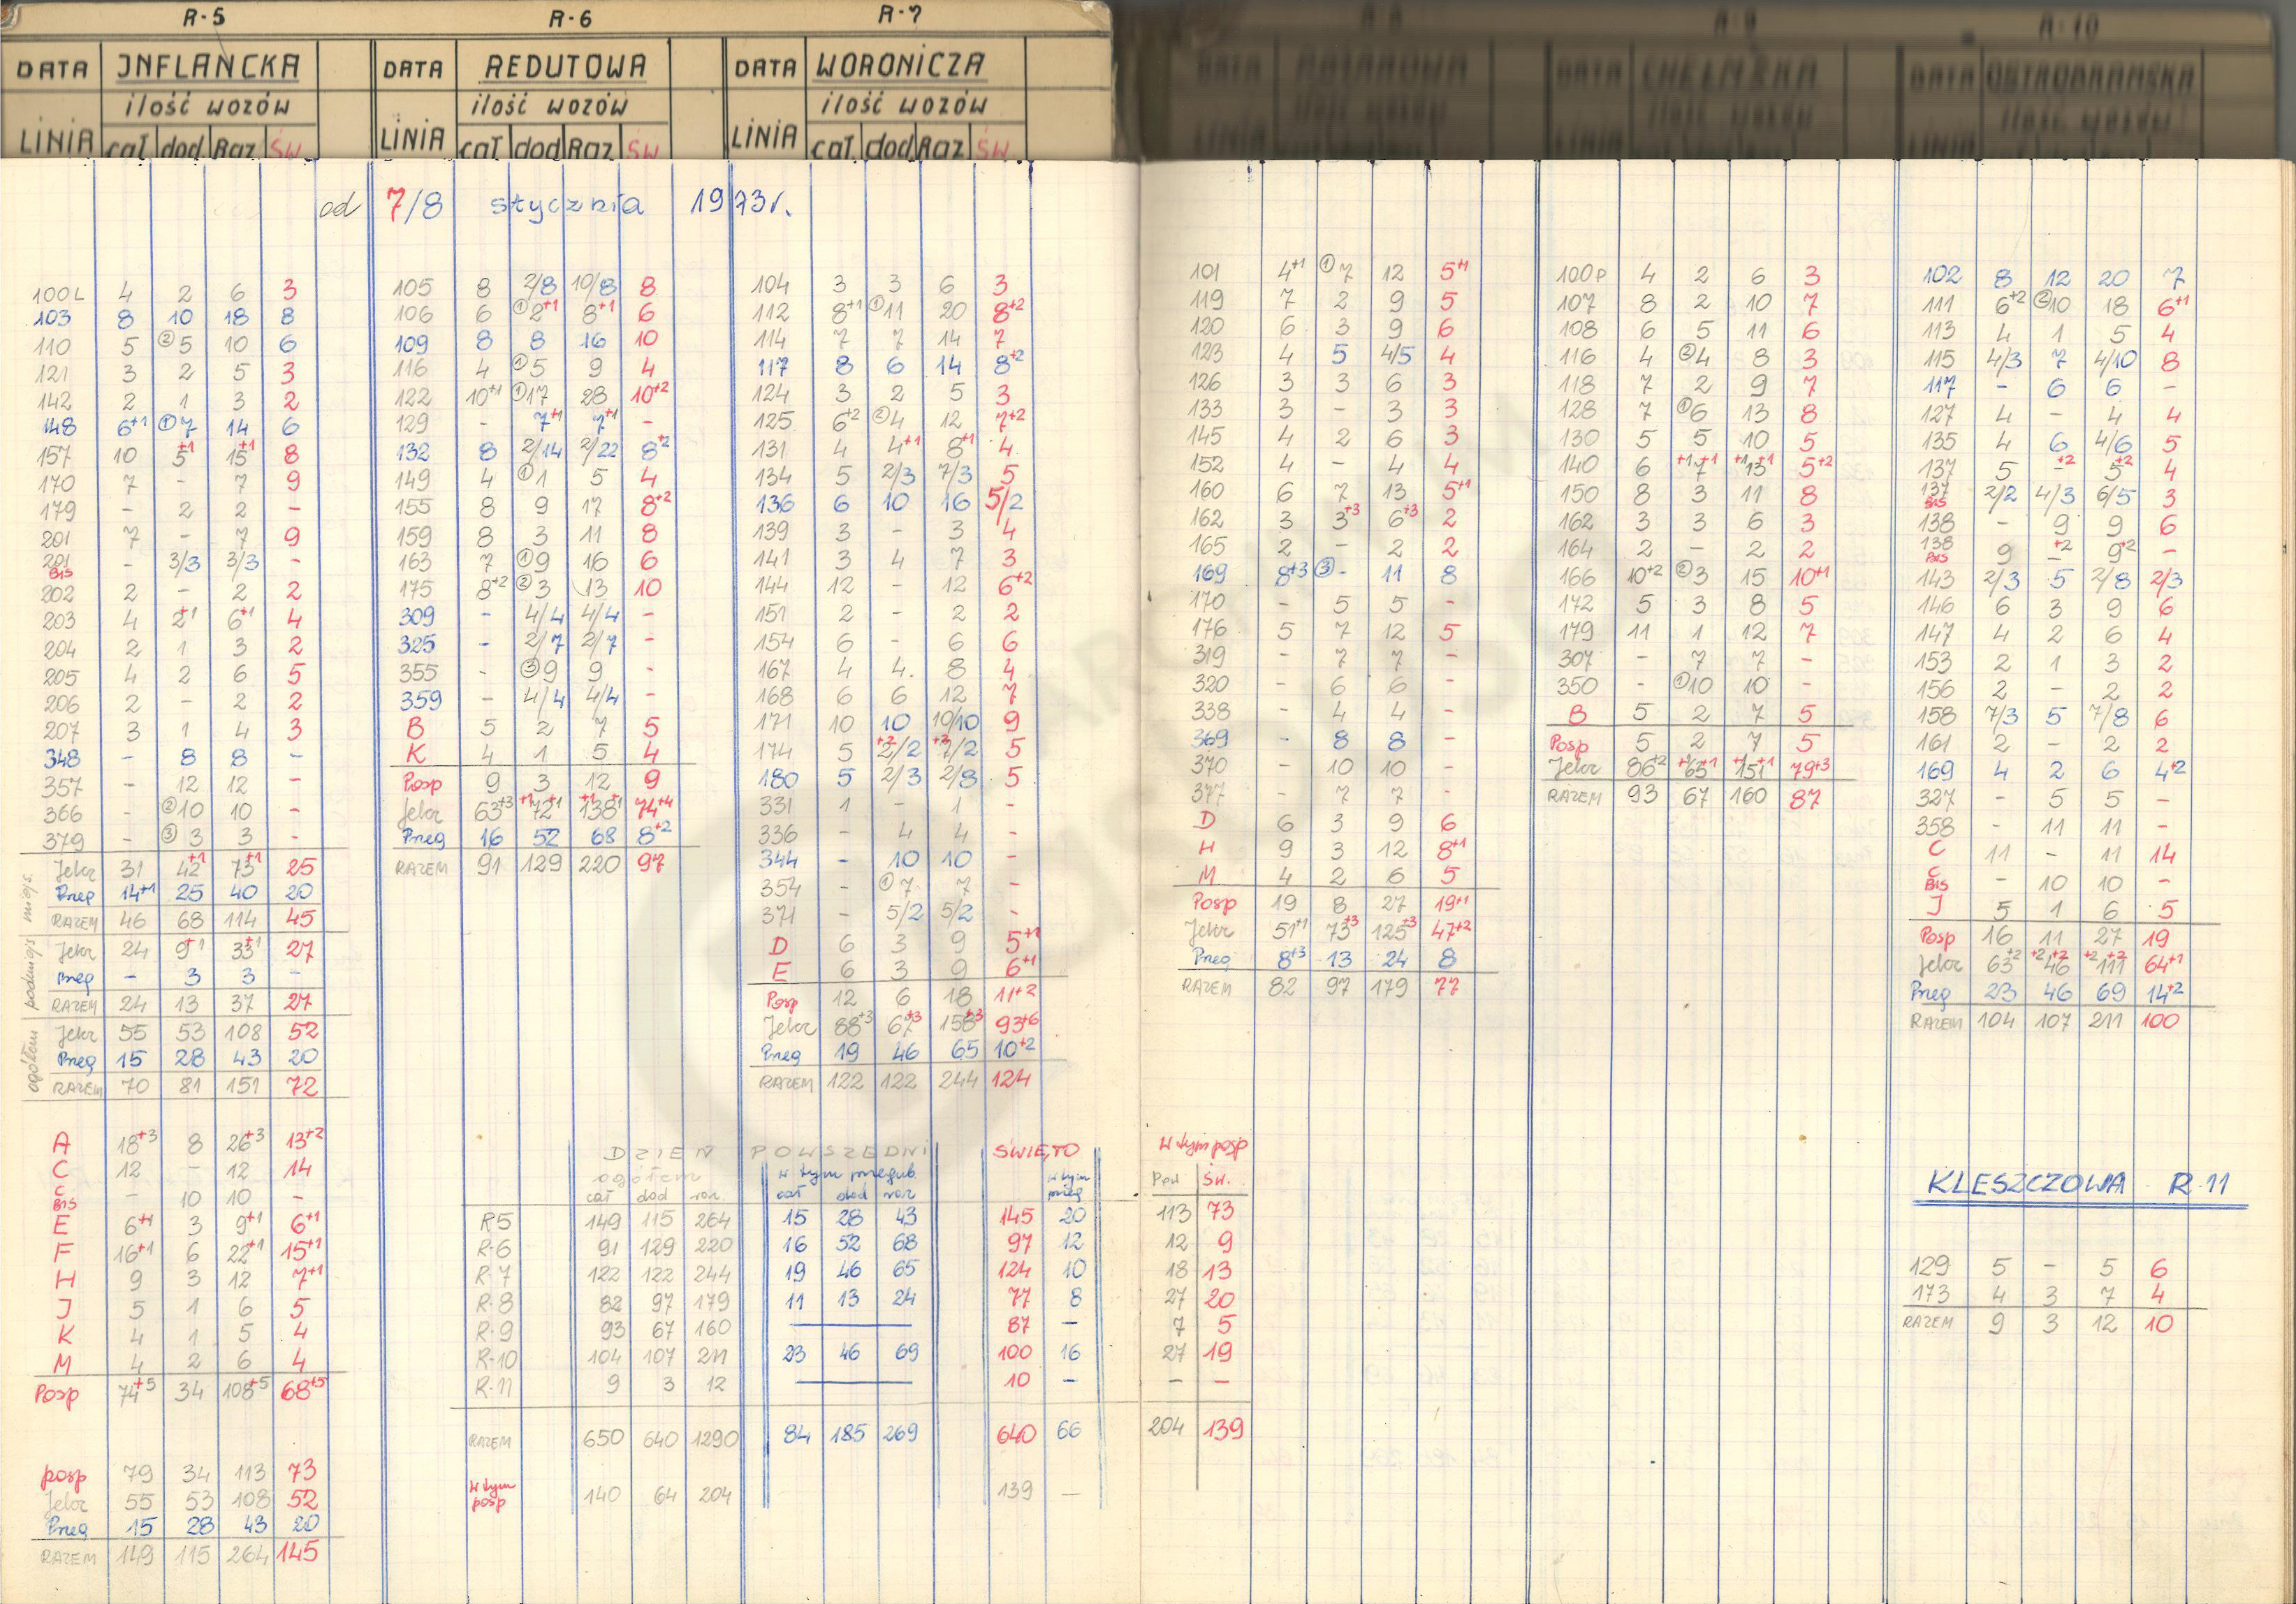 R-5 R-6 R-7 R-8 R-9 R-10
DATA INFLANCKA
ilość wozów
LINIA cał dod Raz św.
DATA REDUTOWA
ilość wozów
LINIA cał dod Raz św
DATA WORONICZA
ilość wozów
LINIA cał. dod Raz św.
DATA CHEŁMSKA
ilość wozów
LINIA
DATA OSTROBRAMSKA
ilość wozów
LINIA
od 7/8 stycznia 1973r.
100L 4 2 6 3
103 8 10 18 8
110 5 ②5 10 6
121 3 2 5 3
142 2 1 3 2
148 6+1 ①7 14 6
157 10 5+1 15+1 8
170 7 - 7 9
179 - 2 2 -
201 7 - 7 9
201 BIS - 3/3 3/3 -
202 2 - 2 2
203 4 2+1 6+1 4
204 2 1 3 2
205 4 2 6 5
206 2 - 2 2
207 3 1 4 3
348 - 8 8 -
357 - 12 12 -
366 - ②10 10 -
379 - ③3 3 -
miejs.
Jelcz 31 42+1 73+1 25
Przeg 14+1 25 40 20
RAZEM 46 68 114 45
podmiejs
Jelcz 24 9+1 33+1 27
Przeg - 3 3 -
RAZEM 24 13 37 27
ogółem
Jelcz 55 53 108 52
Przeg 15 28 43 20
RAZEM 70 81 151 72
A 18+3 8 26+3 13+2
C 12 - 12 14
C BIS - 10 10 -
E 6+1 3 9+1 6+1
F 16+1 6 22+1 15+1
H 9 3 12 7+1
J 5 1 6 5
K 4 1 5 4
M 4 2 6 4
Posp 74+5 34 108+5 68+5
posp 79 34 113 73
Jelcz 55 53 108 52
Przeg 15 28 43 20
RAZEM 149 115 264 145
105 8 2/8 10/8 8
106 6 ①2+1 8+1 6
109 8 8 16 10
116 4 ①5 9 4
122 10+1 ①17 28 10+2
129 - 7+1 7+1 -
132 8 2/14 2/22 8+2
149 4 ①1 5 4
155 8 9 17 8+2
159 8 3 11 8
163 7 ①9 16 6
175 8+2 ②3 13 10
309 - 4/4 4/4 -
325 - 2/7 2/7 -
355 - ③9 9 -
359 - 4/4 4/4 -
B 5 2 7 5
K 4 1 5 4
Posp 9 3 12 9
Jelcz 63+3 +1 72+1 +1 138+1 74+4
Przeg 16 52 68 8+2
RAZEM 91 129 220 97
104 3 3 6 3
112 8+1 ①11 20 8+2
114 7 7 14 7
117 8 6 14 8+2
124 3 2 5 3
125 6+2 ②4 12 7+2
131 4 4+1 8+1 4
134 5 2/3 7/3 5
136 6 10 16 5/2
139 3 - 3 4
141 3 4 7 3
144 12 - 12 6+2
151 2 - 2 2
154 6 - 6 6
167 4 4. 8 4
168 6 6 12 7
171 10 10 10/10 9
174 5 +2 2/2 +2 7/2 5
180 5 2/3 2/8 5
331 1 - 1 -
336 - 4 4 -
344 - 10 10 -
354 - ①7 7 -
371 - 5/2 5/2 -
D 6 3 9 5+1
E 6 3 9 6+1
Posp 12 6 18 11+2
Jelcz 88+3 67+3 158+3 93+6
Przeg 19 46 65 10+2
RAZEM 122 122 244 124
DZIEŃ POWSZEDNI ŚWIĘTO w tym posp
ogółem w tym przegub. w tym przeg
cał dod raz. cał dod raz Pow św.
R5 149 115 264 15 28 43 145 20 113 73
R-6 91 129 220 16 52 68 97 12 12 9
R-7 122 122 244 19 46 65 124 10 18 13
R-8 82 97 179 11 13 24 77 8 27 20
R-9 93 67 160 — 87 - 7 5
R-10 104 107 211 23 46 69 100 16 27 19
R-11 9 3 12 — 10 - - -
RAZEM 650 640 1290 84 185 269 640 66 204 139
w tym posp 140 64 204 139 —
101 4+1 ①7 12 5+1
119 7 2 9 5
120 6 3 9 6
123 4 5 4/5 4
126 3 3 6 3
133 3 - 3 3
145 4 2 6 3
152 4 - 4 4
160 6 7 13 5+1
162 3 3+3 6+3 2
165 2 - 2 2
169 8+3 ③- 11 8
170 - 5 5 -
176 5 7 12 5
319 - 7 7 -
320 - 6 6 -
338 - 4 4 -
369 - 8 8 -
370 - 10 10 -
377 - 7 7 -
D 6 3 9 6
H 9 3 12 8+1
M 4 2 6 5
Posp 19 8 27 19+1
Jelcz 51+1 73+3 125+3 47+2
Przeg 8+3 13 24 8
RAZEM 82 97 179 77
100P 4 2 6 3
107 8 2 10 7
108 6 5 11 6
116 4 ②4 8 3
118 7 2 9 7
128 7 ①6 13 8
130 5 5 10 5
140 6 +1 7+1 +1 13+1 5+2
150 8 3 11 8
162 3 3 6 3
164 2 - 2 2
166 10+2 ②3 15 10+1
172 5 3 8 5
179 11 1 12 7
307 - 7 7 -
350 - ①10 10 -
B 5 2 7 5
Posp 5 2 7 5
Jelcz 86+2 +1 65+1 +1 151+1 79+3
RAZEM 93 67 160 87
102 8 12 20 7
111 6+2 ②10 18 6+1
113 4 1 5 4
115 4/3 7 4/10 8
117 - 6 6 -
127 4 - 4 4
135 4 6 4/6 5
137 5 -+2 5+2 4
137 BIS 2/2 4/3 6/5 3
138 - 9 9 6
138 BIS 9 -+2 9+2 -
143 2/3 5 2/8 2/3
146 6 3 9 6
147 4 2 6 4
153 2 1 3 2
156 2 - 2 2
158 7/3 5 7/8 6
161 2 - 2 2
169 4 2 6 4+2
327 - 5 5 -
358 - 11 11 -
C 11 - 11 14
C BIS - 10 10 -
J 5 1 6 5
Posp 16 11 27 19
Jelcz 63+2 +2 46+2 +2 111+2 64+1
Przeg 23 46 69 14+2
RAZEM 104 107 211 100
KLESZCZOWA R-11
129 5 - 5 6
173 4 3 7 4
RAZEM 9 3 12 10